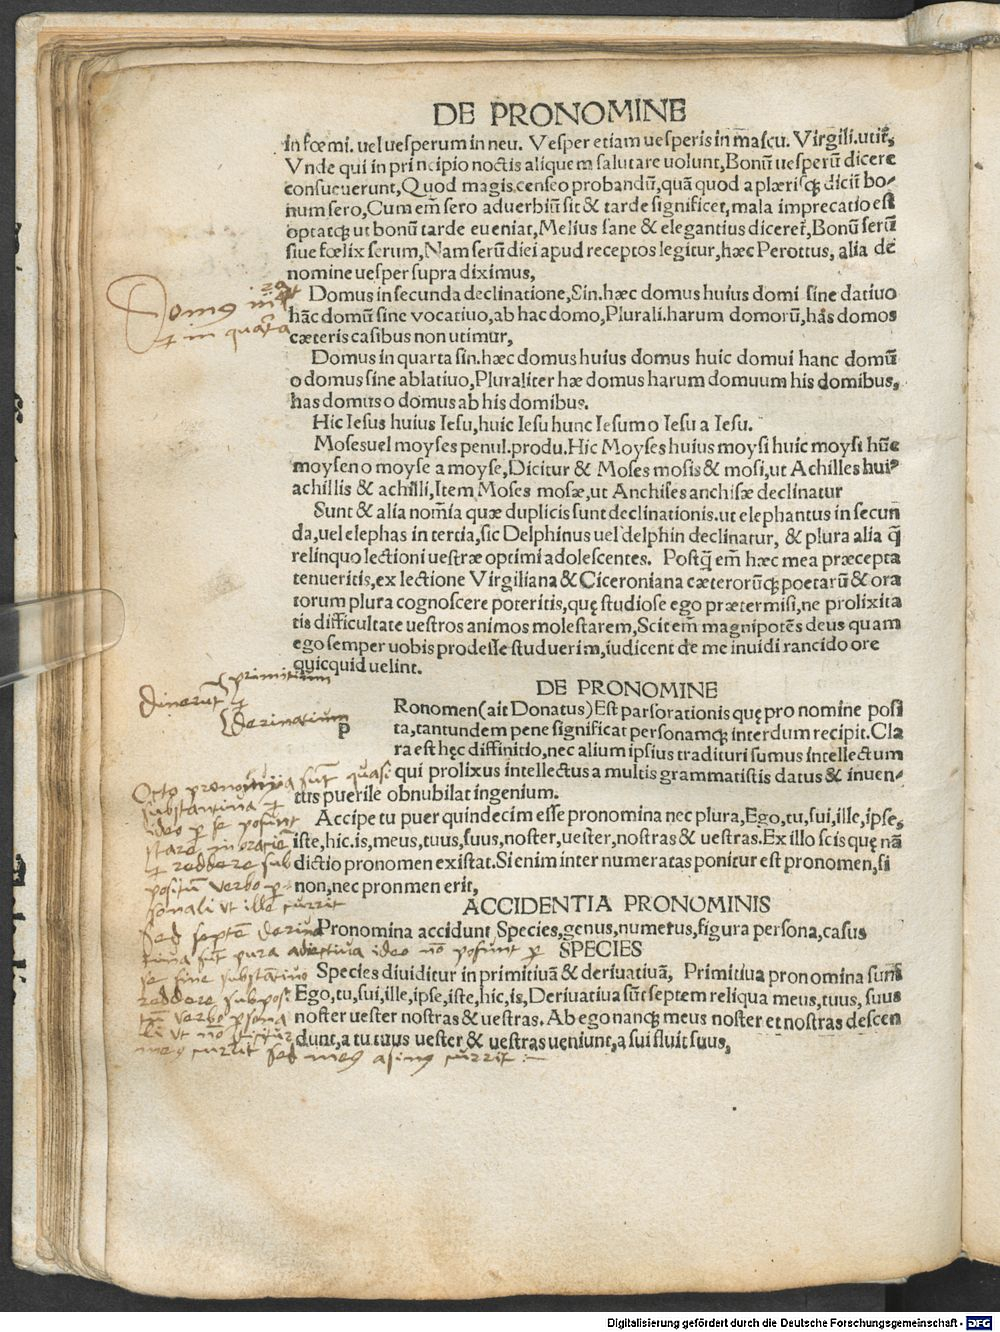 DE PRONOMINE
in fœmi. uel uesperum in neu. Vesper etiam uesperis in mascu. Virgili. utit͛,
Vnde qui in principio noctis aliquem salutare uolunt, Bonū uesperū dicere
consueuerunt, Quod magis censeo probandū, quā quod a plærisq; dicit̄ bo-
num sero, Cum em̄ sero aduerbiū sit & tarde significet, mala imprecatio est
optatq; ut bonū tarde eueniat, Melius sane & elegantius diceret͛, Bonū serū
siue fœlix serum, Nam serū diei apud receptos legitur, hæc Perottus, alia de
nomine uesper supra diximus,
Domus in secunda declinatione, Sin. hæc domus huius domi sine datiuo
hāc domū sine vocatiuo, ab hac domo, Plurali. harum domorū, has domos
cæteris casibus non utimur,
Domus in quarta sin. hæc domus huius domus huic domui hanc domū
o domus sine ablatiuo, Pluraliter hæ domus harum domuum his domibus,
has domus o domus ab his domibus.
Hic Iesus huius Iesu, huic Iesu hunc Iesum o Iesu a Iesu.
Moses uel moyses penul. produ. Hic Moyses huius moysi huic moysi hūc
moysen o moyse a moyse, Dicitur & Moses mosis & mosi, ut Achilles huiꝰ
achillis & achilli, Item Moses mosæ, ut Anchises anchisæ declinatur
Sunt & alia nom̄ia quæ duplicis sunt declinationis. ut elephantus in secun
da, uel elephas in tertia, sic Delphinus uel delphin declinatur, & plura alia q̄
relinquo lectioni uestræ optimi adolescentes. Postq̄ em̄ hæc mea præcepta
tenueritis, ex lectione Virgiliana & Ciceroniana cæterorūq; poetarū & ora
torum plura cognoscere poteritis, quę studiose ego prætermisi, ne prolixita
tis difficultate uestros animos molestarem, Scit em̄ magnipotēs deus quam
ego semper uobis prodesse studuerim, iudicent de me inuidi rancido ore
quicquid uelint.
DE PRONOMINE
p Ronomen (ait Donatus) Est pars orationis quę pro nomine posi
ta, tantundem pene significat personamq; interdum recipit. Cla
ra est hęc diffinitio, nec alium ipsius tradituri sumus intellectum
qui prolixus intellectus a multis grammatistis datus & inuen-
tus puerile obnubilat ingenium.
Accipe tu puer quindecim esse pronomina nec plura, Ego, tu, sui, ille, ipse,
iste, hic. is, meus, tuus, suus, noster, uester, nostras & uestras. Ex illo scis quę nā
dictio pronomen existat. Si enim inter numeratas ponitur est pronomen, si
non, nec pronmen erit,
ACCIDENTIA PRONOMINIS
Pronomina accidunt Species, genus, numerus, figura persona, casus
SPECIES
Species diuiditur in primitiuā & deriuatiuā, Primitiua pronomina sunt
Ego, tu, sui, ille, ipse, iste, hic, is, Deriuatiua sūt septem reliqua meus, tuus, suus
noster uester nostras & uestras. Ab ego nanq; meus noster et nostras descen
dunt, a tu tuus uester & uestras ueniunt, a sui fluit suus,
Domus
et in quarta
primitiuum
et
deriuatiuum
Octo pronomina sūt quasi
substantiua et
ideo per se possunt
stare in oracione
et reddere sup
positū verbo per
sonali vt ille currit
Sed septē deriua
tiua sūt pura adiectiua ideo nō possunt per
se sine substantiuo
reddere supposi
tū verbo persona
li vt nō dicitur
meus currit sed meus asinus currit
Digitalisierung gefördert durch die Deutsche Forschungsgemeinschaft - DFG